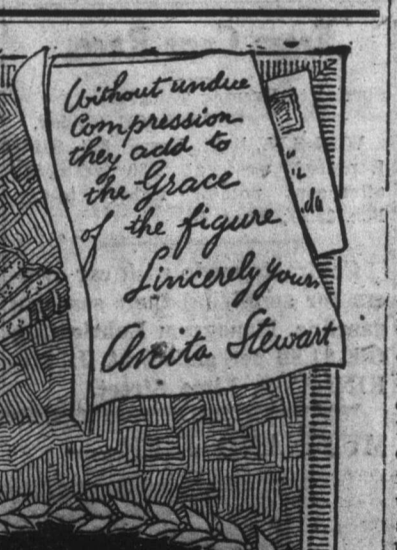 Without undue
Compression
they add to
the Grace
of the figure
Sincerely Yours
Anita Stewart